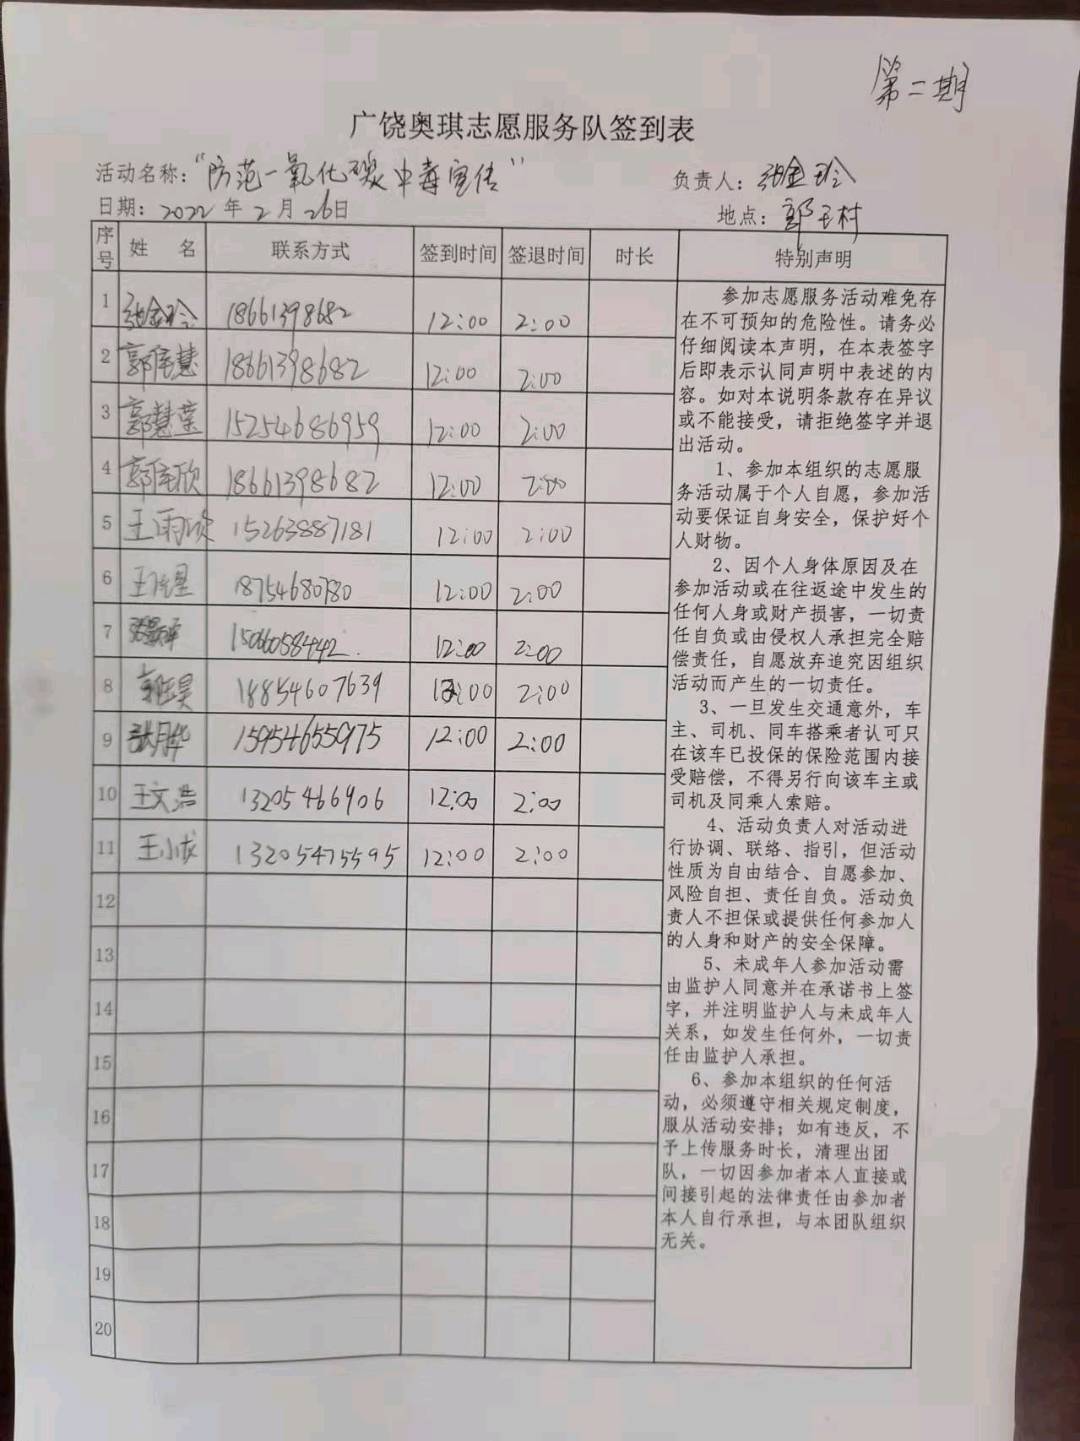 第二期
广饶奥琪志愿服务队签到表
活动名称：“防范一氧化碳中毒宣传” 负责人：张金玲
日期：2022年2月26日 地点：郭王村
序号 姓 名 联系方式 签到时间 签退时间 时长 特别声明
1 张金玲 18661398682 12:00 2:00
2 郭佳慧 18661398682 12:00 2:00
3 郭慧莹 15254686959 12:00 2:00
4 郭佳欣 18661398682 12:00 2:00
5 王雨欣 15263887181 12:00 2:00
6 18754680780 12:00 2:00
7 15066058442. 12:00 2:00
8 18854607639 12:00 2:00
9 张月华 15954655975 12:00 2:00
10 王文浩 13205466906 12:00 2:00
11 王小龙 13205475595 12:00 2:00
12
13
14
15
16
17
18
19
20
参加志愿服务活动难免存
在不可预知的危险性。请务必
仔细阅读本声明，在本表签字
后即表示认同声明中表述的内
容。如对本说明条款存在异议
或不能接受，请拒绝签字并退
出活动。
1、参加本组织的志愿服
务活动属于个人自愿，参加活
动要保证自身安全，保护好个
人财物。
2、因个人身体原因及在
参加活动或在往返途中发生的
任何人身或财产损害，一切责
任自负或由侵权人承担完全赔
偿责任，自愿放弃追究因组织
活动而产生的一切责任。
3、一旦发生交通意外，车
主、司机、同车搭乘者认可只
在该车已投保的保险范围内接
受赔偿，不得另行向该车主或
司机及同乘人索赔。
4、活动负责人对活动进
行协调、联络、指引，但活动
性质为自由结合、自愿参加、
风险自担、责任自负。活动负
责人不担保或提供任何参加人
的人身和财产的安全保障。
5、未成年人参加活动需
由监护人同意并在承诺书上签
字，并注明监护人与未成年人
关系，如发生任何外，一切责
任由监护人承担。
6、参加本组织的任何活
动，必须遵守相关规定制度，
服从活动安排；如有违反，不
予上传服务时长，清理出团
队，一切因参加者本人直接或
间接引起的法律责任由参加者
本人自行承担，与本团队组织
无关。